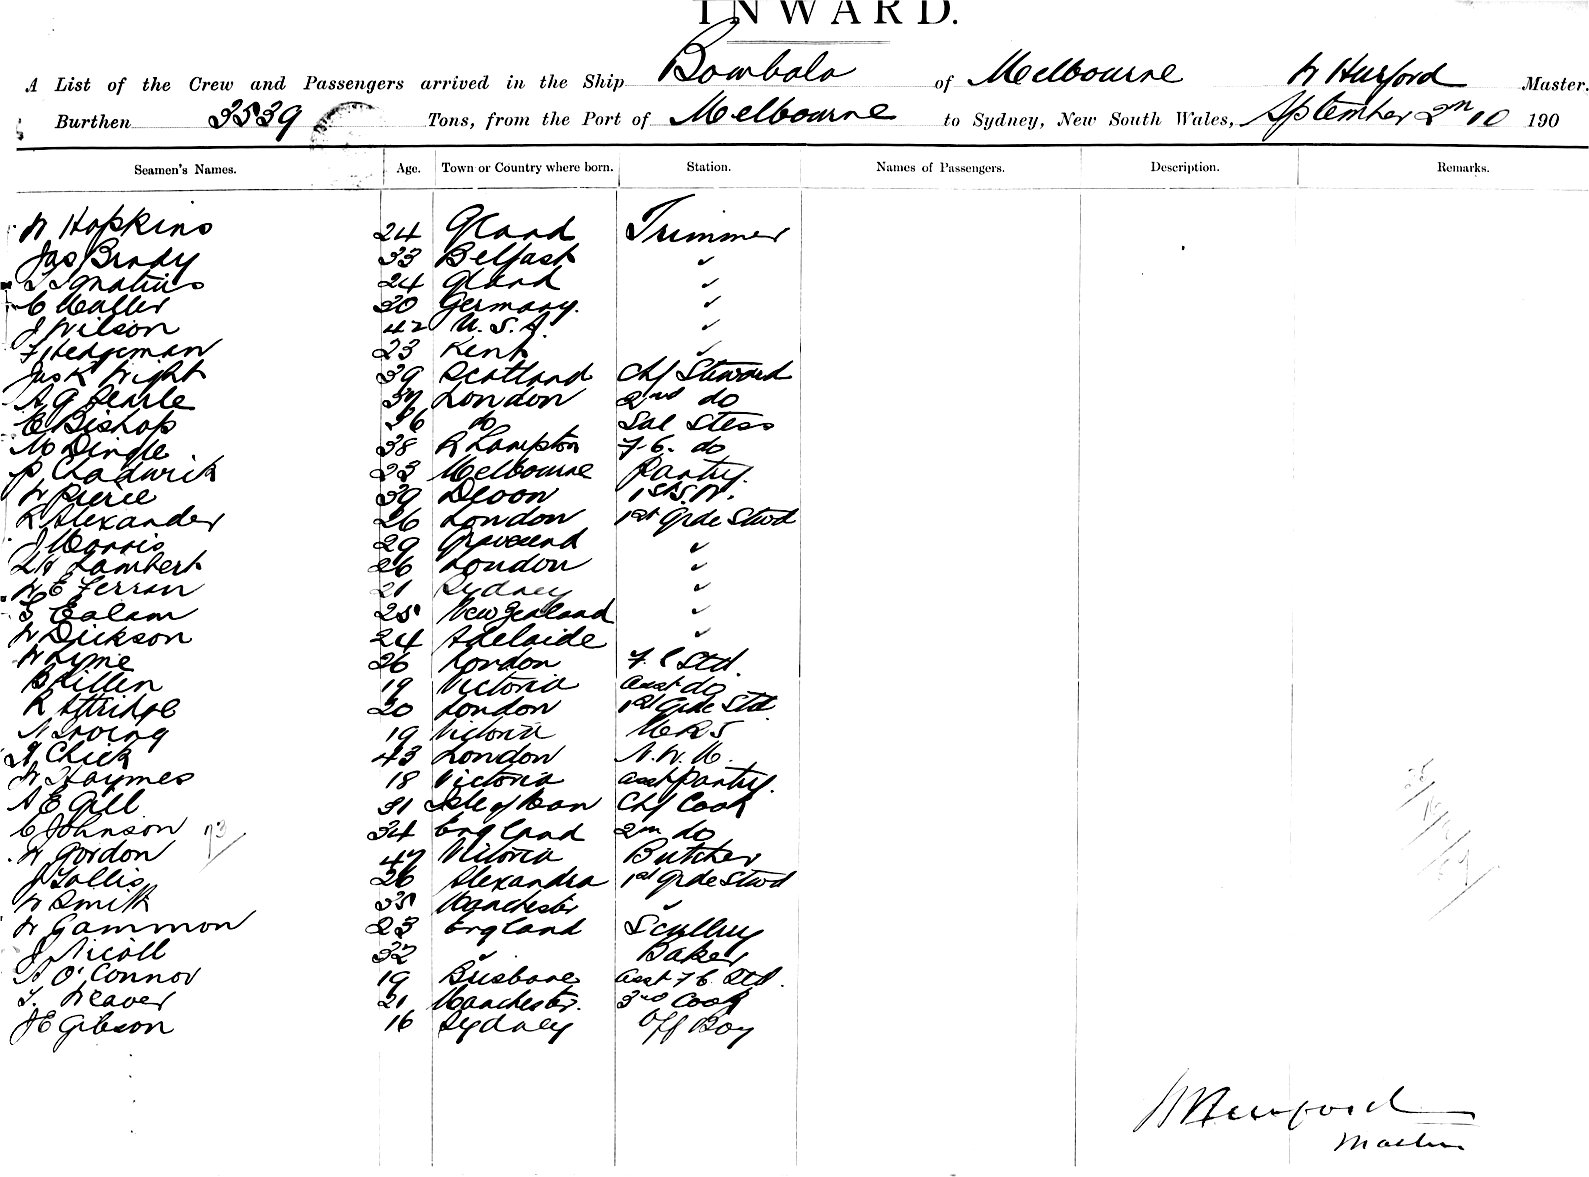 INWARD.
A List of the Crew and Passengers arrived in the Ship Bombala of Melbourne W Hurford Master.
Burthen 3539 Tons, from the Port of Melbourne to Sydney, New South Wales, September 2nd 10 190
Seamen's Names. Age. Town or Country where born. Station. Names of Passengers. Description. Remarks.
W Hopkins 24 Gland Trimmer
Jas Brady 33 Belfast ✓
T Ignatius 24 Gland ✓
C Maller 30 Germany. ✓
J Wilson 42 U.S.A. ✓
F Hedgeman 23 Kent ✓
Jas K Wight 39 Scotland Chf Steward
A G Searle 37 London 2nd do
E Bishop 36 do Sal Stess
M Dingle 38 R Hampton F.C. do
P Chadwick 23 Melbourne Pantry.
W Pierce 39 Devon 1st S.W.
R Alexander 26 London 1st Grde Stwd
J Morris 29 Gravesend ✓
L H Lambert 26 London ✓
W E Ferran 21 Sydney ✓
S Ealam 25 New Zealand ✓
W Dickson 24 Adelaide ✓
W Lyme 26 London F.C Std.
B Killen 19 Victoria asst do
R Attridge 20 London 1st Grde Std
N Irving 19 Victoria M R S
H Chick 43 London N.W.M.
W Haymes 18 Victoria asst Pantry.
A E Gill 31 Isle of Man Chf Cook
C Johnson 34 England 2nd do
W Gordon 47 Vitoria Butcher
J Lollis 26 Alexandra 1st Grde Stwd
W Smith 35 Manchester ✓
W Gammon 23 England Scullery
J Nicoll 32 ✓ Baker
A O'Connor 19 Brisbane asst F C Std.
T. Weaver 21 Manchester. 3rd Cook
J E Gibson 16 Sydney Off Boy
W Hurford
Master